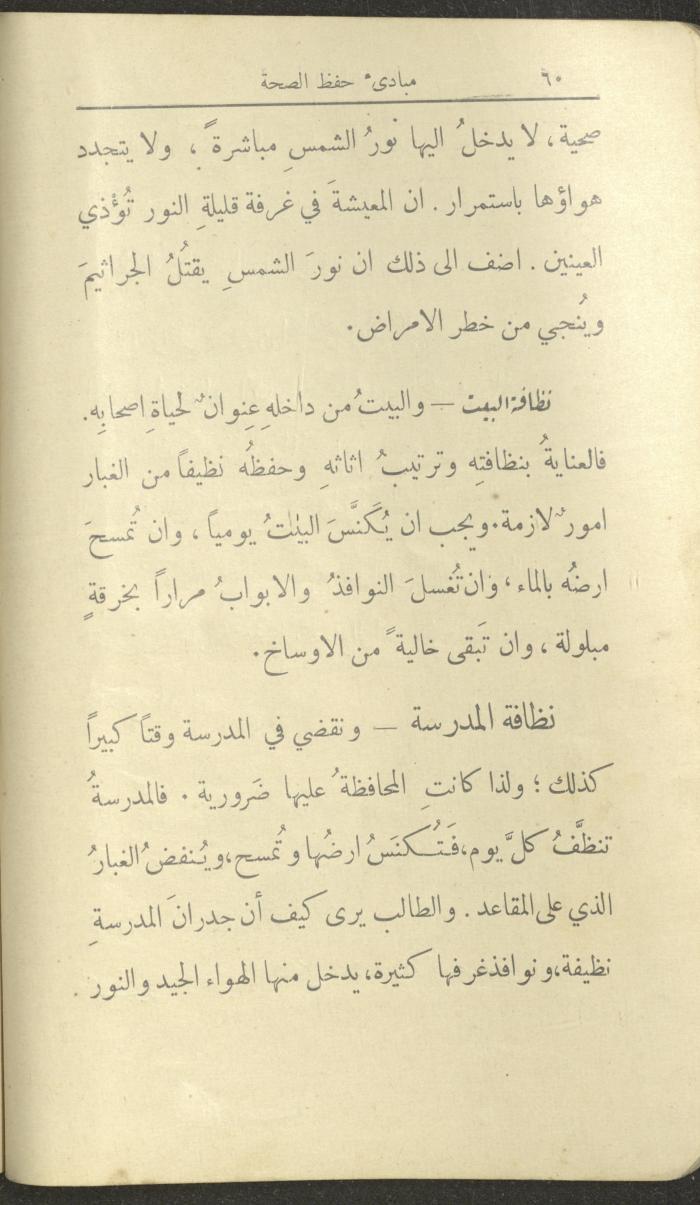 ٦٠ مبادىء حفظ الصحة
صحية، لا يدخلُ اليها نورُ الشمسِ مباشرةً ، ولا يتجدد
هواؤها باستمرار . ان المعيشةَ في غرفة قليلةِ النور تُؤْذي
العينين . اضف الى ذلك ان نورَ الشمسِ يقتُلُ الجراثيمَ
ويُنجي من خطر الامراض.
نظافة البيت – والبيتُ من داخلهِ عِنوانٌ لحياةِ اصحابِه.
فالعنايةُ بنظافتِه وترتيبُ اثاثهِ وحفظُه نظيفاً من الغبار
امورٌ لازمة. ويجب ان يُكَنَّسَ البيتُ يومياً ، وان تُمسحَ
ارضُه بالماء، وان تُغسلَ النوافذُ والابوابُ مراراً بخرقةٍ
مبلولة ، وان تَبقى خاليةً من الاوساخ.
نظافة المدرسة – ونقضي في المدرسة وقتاً كبيراً
كذلك ؛ ولذا كانتِ المحافظةُ عليها ضَرورية . فالمدرسةُ
تنظَّفُ كلَّ يوم، فَتُـكنَسُ ارضُها وتُمسح، ويُنفضُ الغبارُ
الذي على المقاعد . والطالب يرى كيف أن جدرانَ المدرسةِ
نظيفة، ونوافذ غرفها كثيرة، يدخل منها الهواء الجيد والنور .